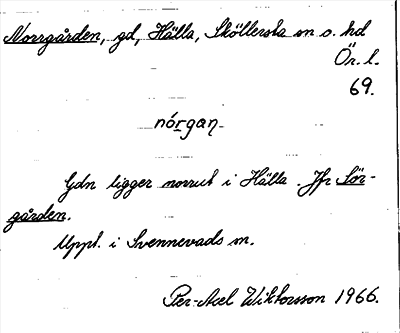 Norrgården, gd, Hälla, Sköllersta sn o. hd
Ör. l.
69.
nórgaɳ
Gdn ligger norrut i Hälla. Jfr Sör-
gården.
Uppt. i Svennevads sn.
Per-Axel Wiktorsson 1966.